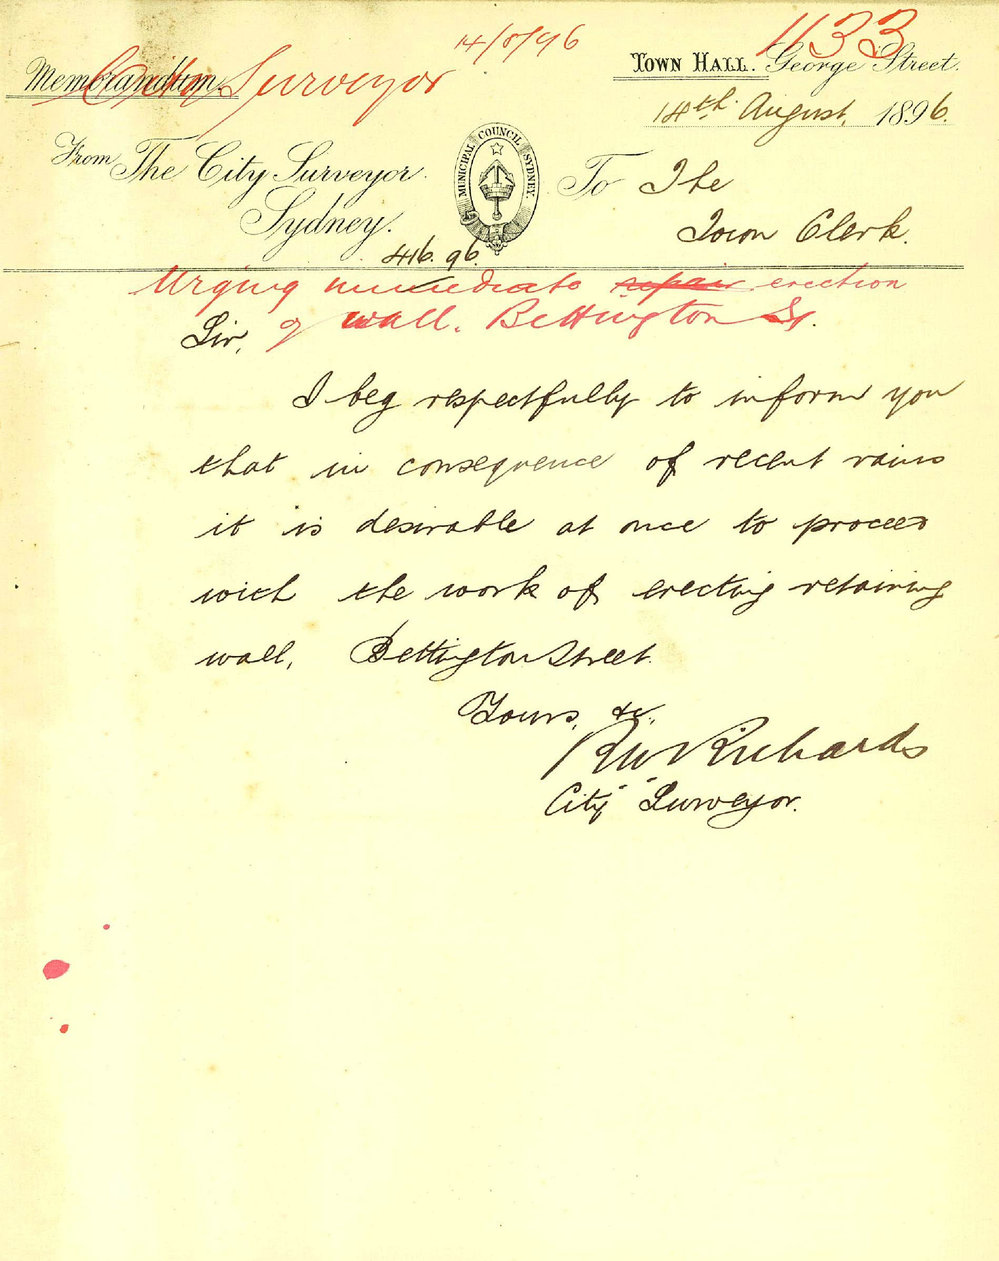 14/8/96
1133
City Surveyor
Memorandum.
TOWN HALL. George Street.
14th August, 1896.
From The City Surveyor.
Sydney.
MUNICIPAL COUNCIL SYDNEY.
To The
Town Clerk.
416.96.
Urging immediate repair erection
of wall. Bettington St.
Sir,
I beg respectfully to inform you
that in consequence of recent rains
it is desirable at once to proceed
with the work of erecting retaining
wall, Bettington Street.
Yours, &c.
RW Richards
City Surveyor.